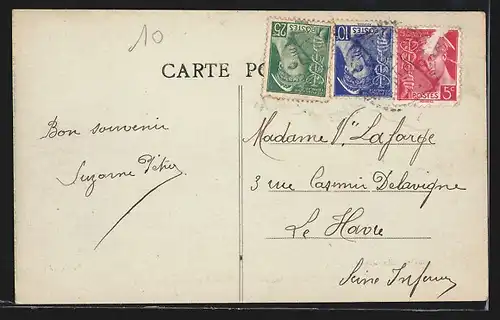 10
25
POSTES
10
POSTES
5c
CARTE PO
Bon souvenir
Suzanne
Madame Vve Lafarge
3 rue Casimir Delavigne
Le Havre
Seine Infre